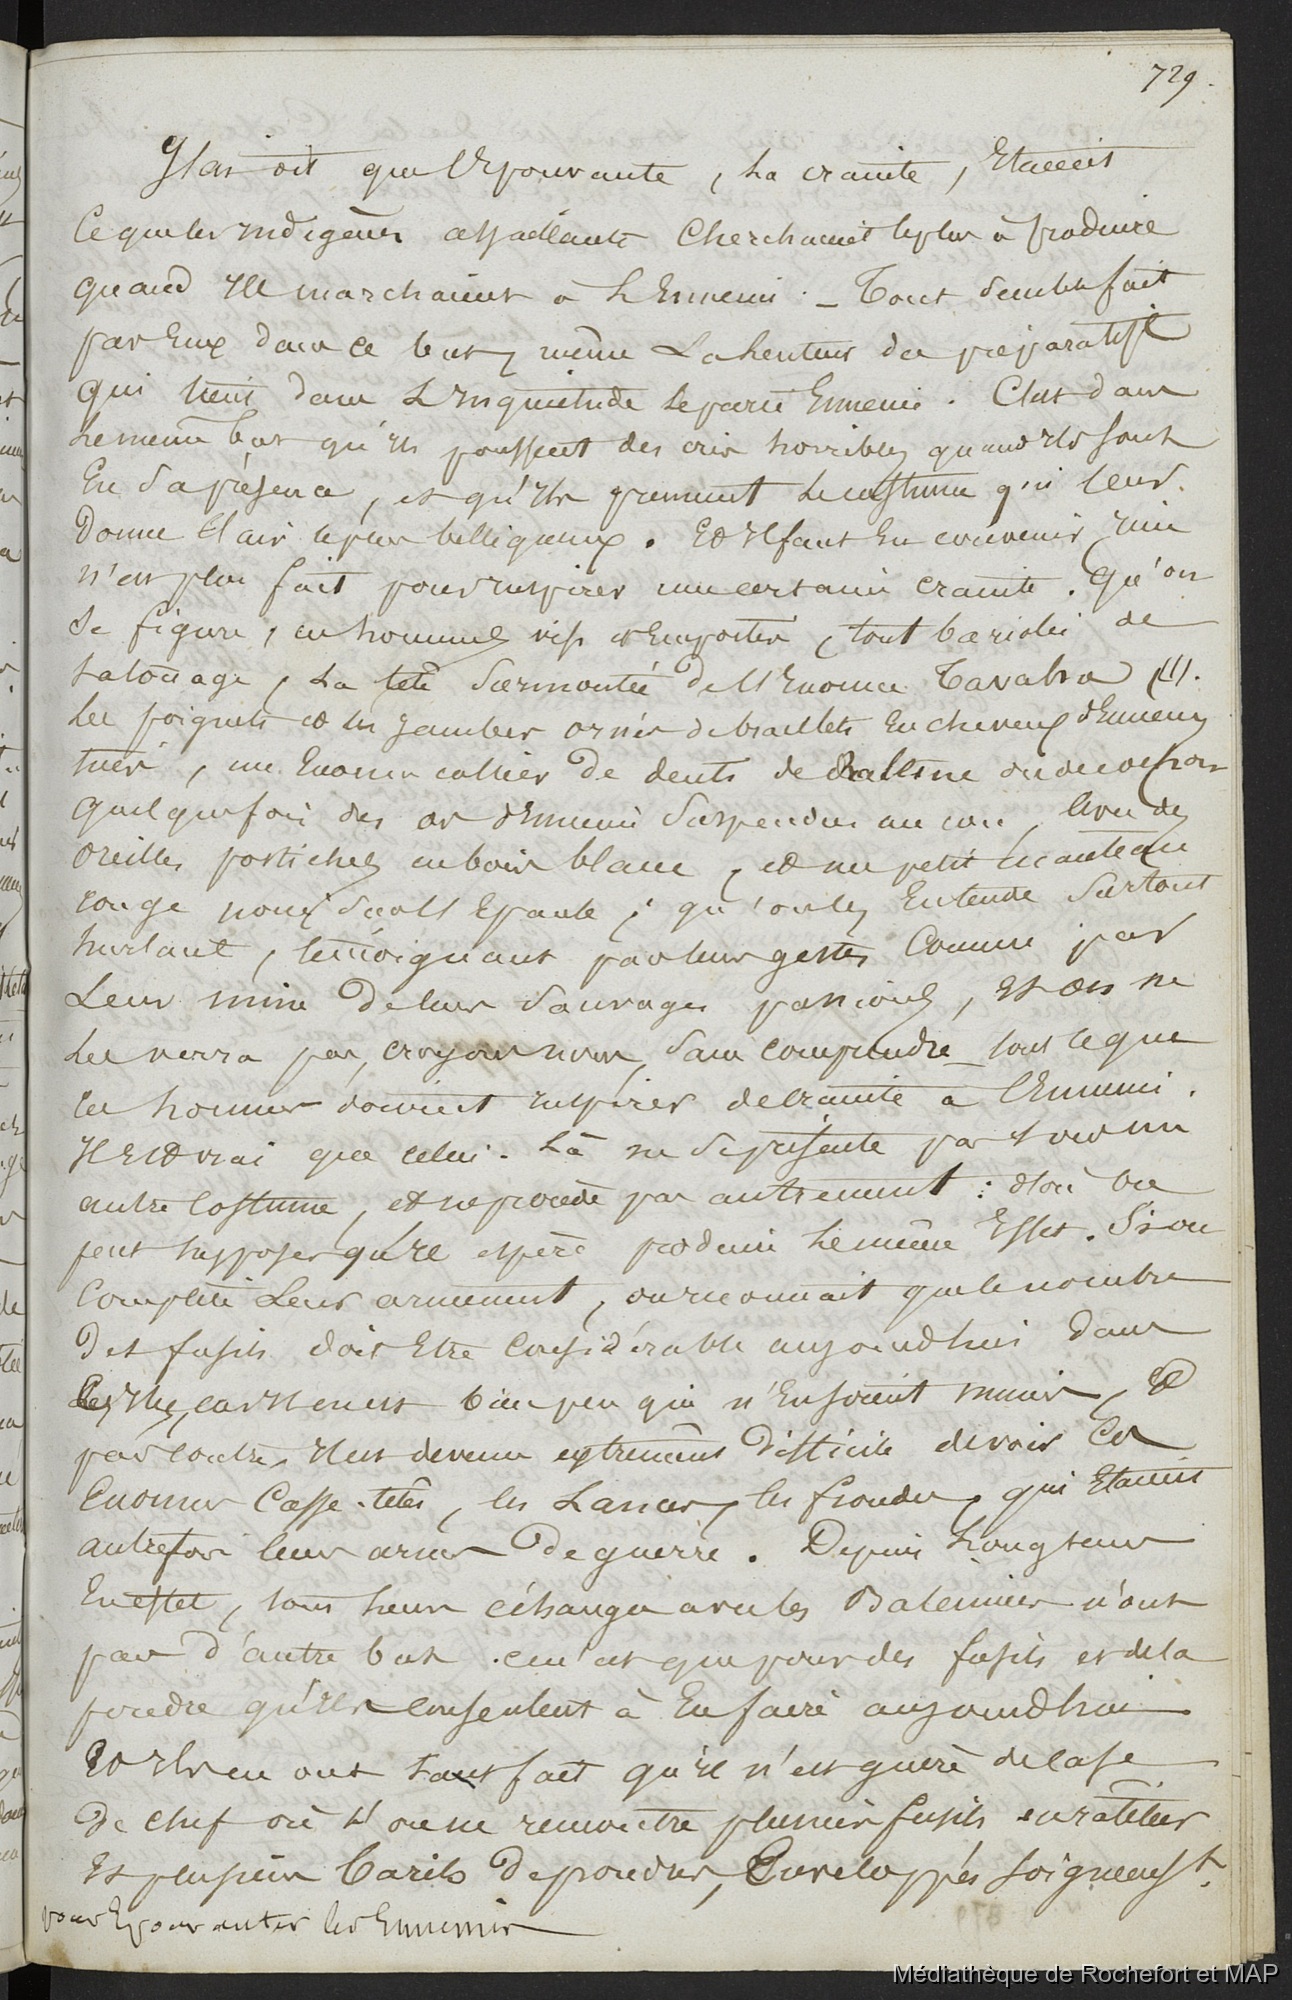 729.
Il est dit que l'Epouvante, la crainte, Etaient
Ce que les indigènes assaillants Cherchaient le plus à produire
quand Ils marchaient à L'Ennemi. – Tout semble fait
par Eux dans ce but, même La lenteur des préparatifs
qui tient dans L'Inquiétude le parti Ennemi. C'est dans
Le meme but qu'ils poussent des cris horribles quand Ils sont
En Sa présence, et qu'Ils prennent Le costume qui leur
Donne l'air le plus belliqueux. Et Il faut En convenir, rien
n'est plus fait pour inspirer une certaine crainte. Qu'on
Se figure, ces hommes vifs et Emportés, tout bariolés de
tatouage, La tête Surmontée de l'Enorme Tavaha (1).
Les poignets et les jambes ornés de bracelets En cheveux d'Ennemis
tués, un Enorme collier de dents de Baleine ou de cochon
quelquefois des os d'Ennemi Suspendus au cou, avec des
oreilles postiches en bois blanc, et un petit manteau
rouge noué sur l'Epaule; qu'on les Entende Surtout
hurlant, témoignant par leurs gestes Comme par
Leur mine De leurs Sauvages passions, et on ne
Les verra pas, croyons nous, Sans Comprendre tout ce que
ces hommes doivent inspirer de crainte à l'Ennemi.
Il Est vrai que celui-là ne Se présente pas sous un
autre Costume, et ne procède pas autrement: d'où on
peut supposer qu'Il espère produire Le même Effet. Si on
Complète Leur armement, on reconnait que le nombre
Des fusils doit Etre Considérable aujourdhui Dans
Les Iles, car Il en est bien peu qui n'En soient munis, Et
par contre, Il est devenu extrêmemt Difficile de voir Ces
Enormes Casse-têtes, les Lances, les frondes, qui Etaient
autrefois leurs armes De guerre. Depuis Longtems
En effet, tous leurs échanges avec les Baleiniers n'ont
pas D'autre but. ce n'est que pour des fusils et de la
poudre qu'Ils consentent à En faire aujourdhui
Et Ils en ont tant fait qu'Il n'est guère de case
De chef où l'on ne rencontre plusieurs fusils en ratelier
Et plusieurs Barils De poudre, Enveloppés soigneust.
pour Epouvanter les Ennemis
Médiathèque de Rochefort et MAP